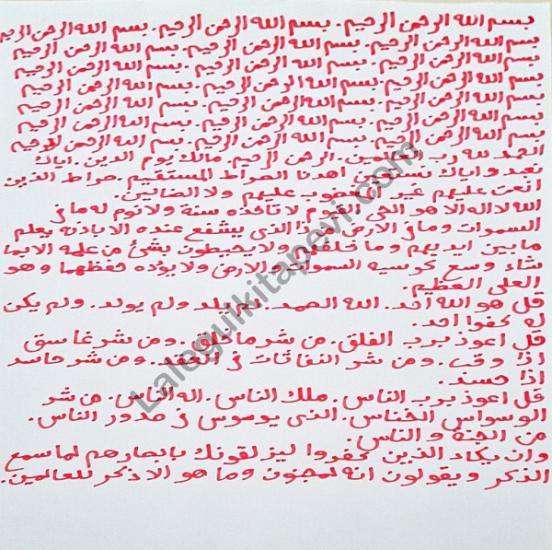 بسم الله الرحمن الرحيم. بسم الله الرحمن الرحيم. بسم الله الرحمن الرحيم. بسم الله الرحمن الرحيم
بسم الله الرحمن الرحيم. بسم الله الرحمن الرحيم. بسم الله الرحمن الرحيم
بسم الله الرحمن الرحيم. بسم الله الرحمن الرحيم. بسم الله الرحمن الرحيم
بسم الله الرحمن الرحيم. بسم الله الرحمن الرحيم. بسم الله الرحمن الرحيم
بسم الله الرحمن الرحيم. بسم الله الرحمن الرحيم. بسم الله الرحمن الرحيم
بسم الله الرحمن الرحيم. بسم الله الرحمن الرحيم. بسم الله الرحمن الرحيم
بسم الله الرحمن الرحيم. بسم الله الرحمن الرحيم. بسم الله الرحمن الرحيم
الحمد لله رب العالمين. الرحمن الرحيم. مالك يوم الدين. اياك
نعبد و اياك نستعين اهدنا الصراط المستقيم. صراط الذين
انعمت عليهم غير المغضوب عليهم ولا الضالين.
الله لا اله الا هو الحي القيوم لا تاخذه سنة ولا نوم له ما في
السموات وما في الارض من ذا الذي يشفع عنده الا باذنه يعلم
ما بين ايديهم وما خلفهم ولا يحيطون بشئ من علمه الا بما
شاء وسع كرسيه السموات والارض ولا يؤده حفظهما وهو
العلى العظيم.
قل هو الله احد. الله الصمد. لم يلد ولم يولد. ولم يكن
له كفوا احد.
قل اعوذ برب الفلق. من شر ما خلق. ومن شر غاسق
اذا وقب. ومن شر النفاثات في العقد. ومن شر حاسد
اذا حسد.
قل اعوذ برب الناس. ملك الناس. اله الناس. من شر
الوسواس الخناس. الذى يوسوس في صدور الناس.
من الجنة و الناس.
وان يكاد الذين كفروا ليزلقونك بابصارهم لما سمع
الذكر ويقولون انه لمجنون وما هو الا ذكر للعالمين.
Lalegulkitapevi.com